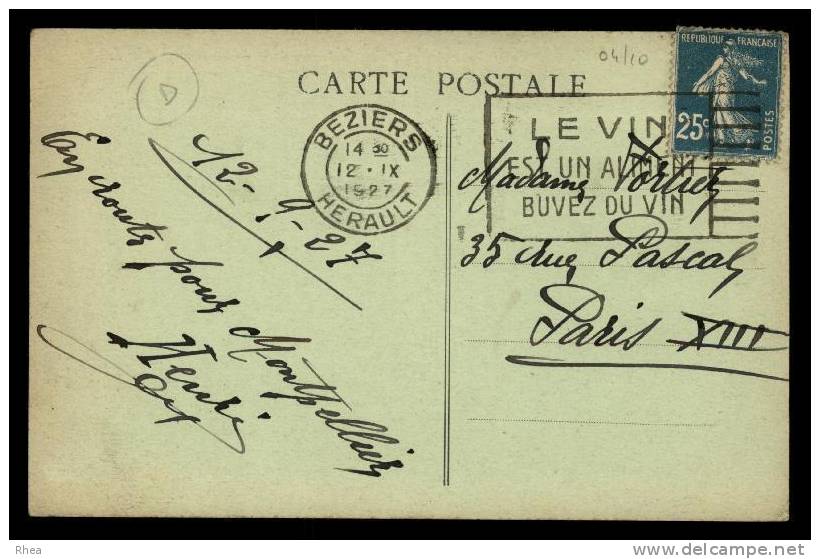 04/10
RÉPUBLIQUE FRANÇAISE
25c
POSTES
CARTE POSTALE
BEZIERS
14 30
12 • IX
1927
HERAULT
LE VIN
EST UN ALIMENT
BUVEZ DU VIN
D
12-9-27
En route pour Montpellier
Henri
Madame
35 rue Pascal
Paris XIII
Rhea
www.delcampe.net